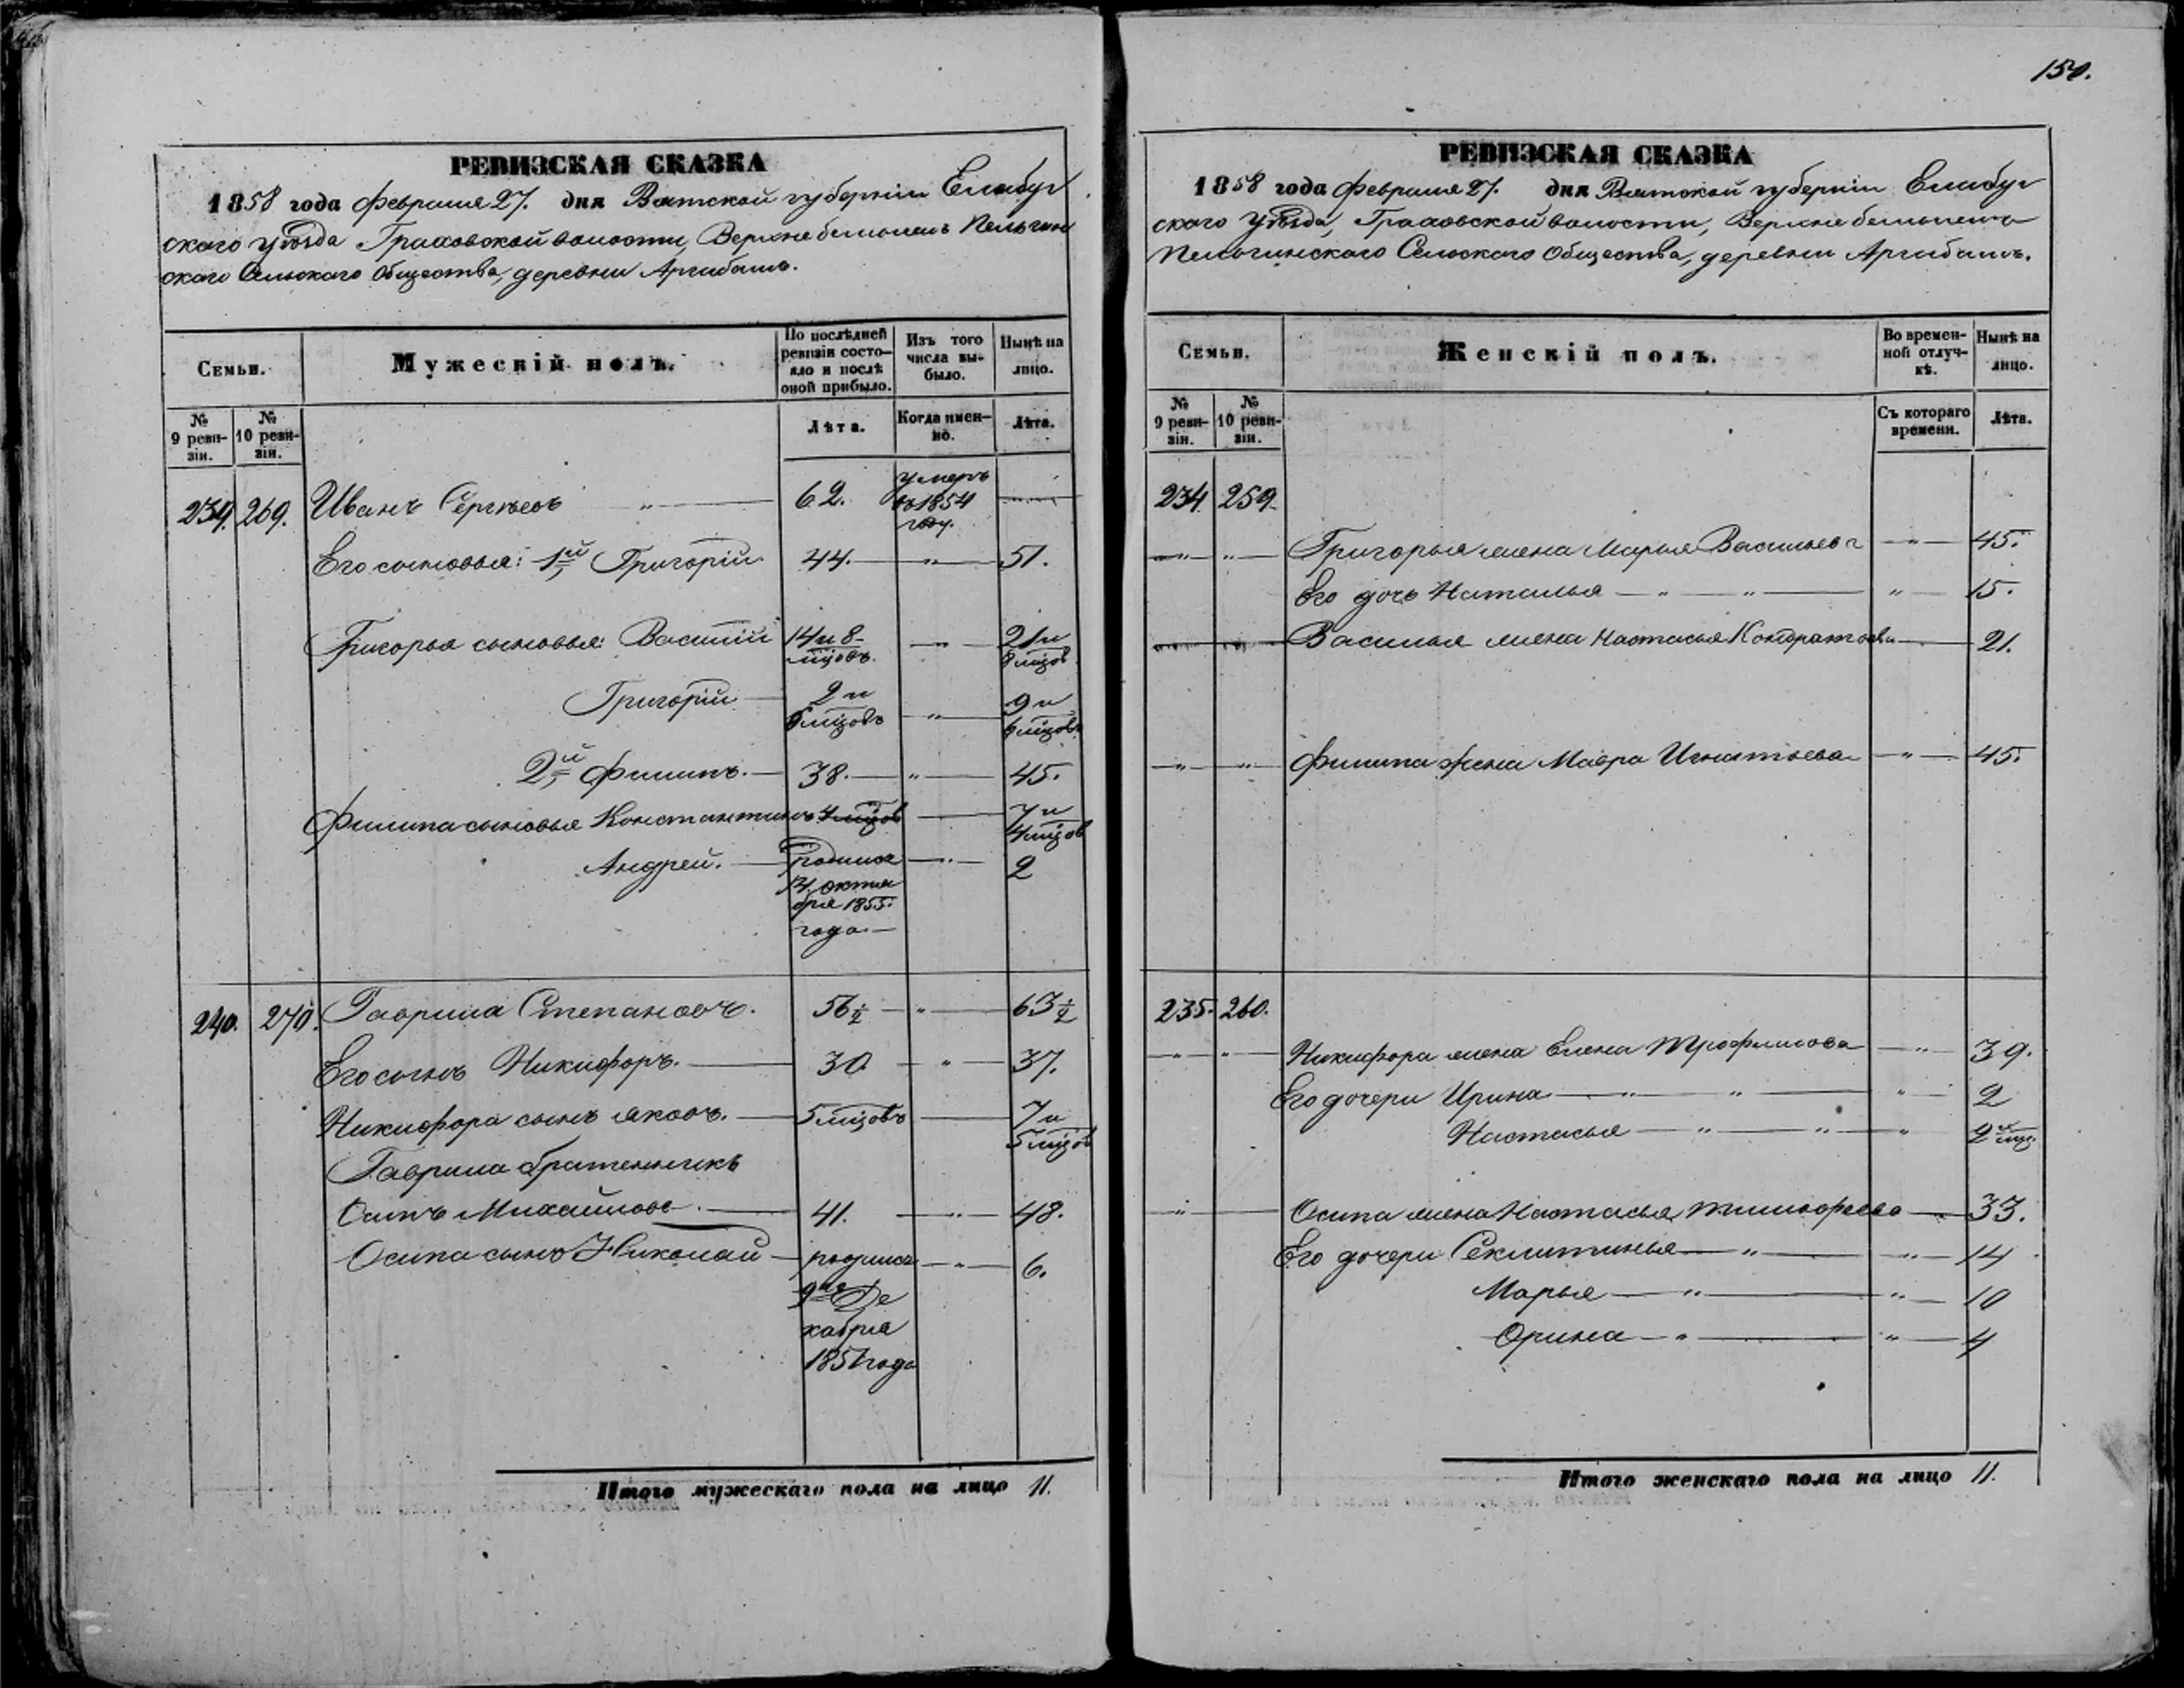 150.
РЕВИЗСКАЯ СКАЗКА
1858 года февраля 27. дня Вятской губерніи Елабуг
скаго уѣзда Граховской волости, Верхне бемышевъ Пельгин
скаго Сельскаго Общества, деревни Аргабашъ.
Семьи.
Мужескій полъ.
По послѣдней ревизіи состояло и послѣ оной прибыло.
Изъ того числа выбыло.
Нынѣ на лицо.
№ 9 ревизіи.
№ 10 ревизіи.
Лѣта.
Когда именно.
Лѣта.
239. 269. Иванъ Сергѣевъ " 62. умеръ въ 1854 году.
Его сыновья: 1й, Григорій 44. " 51.
Григорья сыновья: Василій 14 и 8 мцовъ. " 21 и 8 мцов
Григорій 2 и 6 мцовъ " 9 и 6 мцовъ
2й, Филипъ. 38. " 45.
Филипа сыновья Константинъ 4 мцов 7 и 4 мцов
Андрей. родился 14 октября 1855. года " 2
240. 270. Гаврила Степановъ. 56½ " 63½
Его сынъ Никифоръ. 30 " 37.
Никифора сынъ Яковъ. 5 мцовъ 7 и 5 мцов
Гаврила братенникъ
Осипъ Михайловъ 41. " 48.
Осипа сынъ Николай родился 9го Декабря 1851 года " 6.
Итого мужескаго пола на лицо 11.
РЕВИЗСКАЯ СКАЗКА
1858 года февраля 27. дня Вятской губерніи Елабуг
скаго Уѣзда, Граховской волости, Верхне бемышевъ
Пельгинскаго Сельскаго Общества, деревни Аргабашъ.
Семьи.
Женскій полъ.
Во временной отлучкѣ.
Нынѣ на лицо.
№ 9 ревизіи.
№ 10 ревизіи.
Съ котораго времени.
Лѣта.
234. 259.
" " Григорья жена Марья Васильева " 45.
Его дочь Наталья " " " 15.
Василья жена Настасья Кондратьева 21.
" " Филипа жена Мавра Игнатьева " 45.
235. 260.
" " Никифора жена Елена Трофимова " 39.
Его дочери Ирина " " " 2
Настасья " " " 2 мц.
" Осипа жена Настасья Тимофеева 33.
Его дочери Секлитинья " " 14
Марья " " 10
Орина " " 4
Итого женскаго пола на лицо 11.